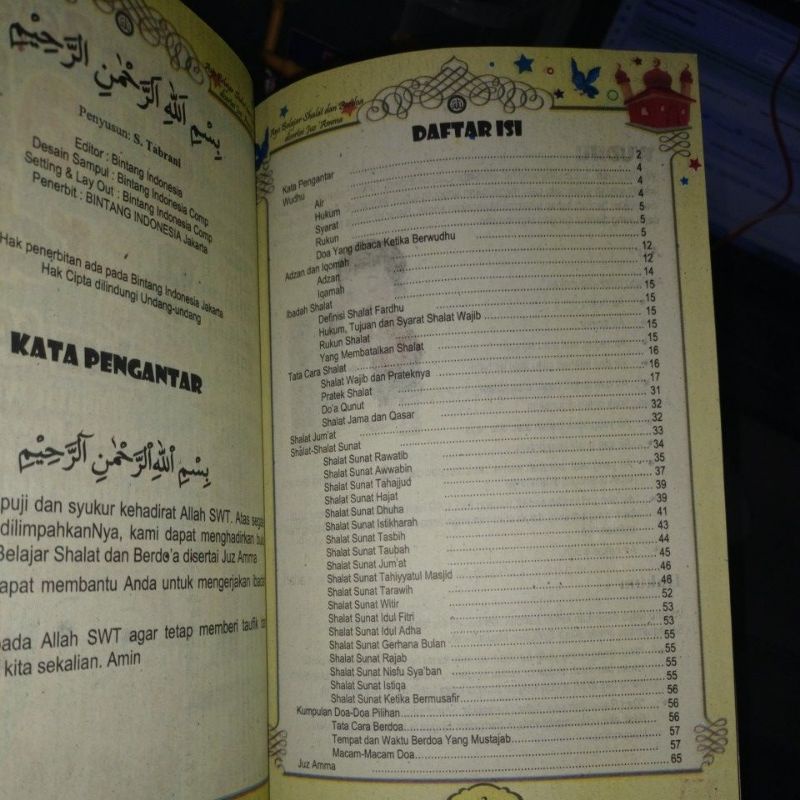 بِسْمِ اللهِ الرَّحْمٰنِ الرَّحِيْمِ
Penyusun: S. Tabrani
Editor : Bintang Indonesia
Desain Sampul : Bintang Indonesia Comp
Setting & Lay Out : Bintang Indonesia Comp
Penerbit : BINTANG INDONESIA Jakarta
Hak penerbitan ada pada Bintang Indonesia Jakarta
Hak Cipta dilindungi Undang-undang
KATA PENGANTAR
بِسْمِ اللهِ الرَّحْمٰنِ الرَّحِيْمِ
puji dan syukur kehadirat Allah SWT. Atas
dilimpahkanNya, kami dapat menghadirkan
Belajar Shalat dan Berdo'a disertai Juz Amma
dapat membantu Anda untuk mengerjakan
pada Allah SWT agar tetap memberi taufik
kita sekalian. Amin
Belajar Shalat dan Berdoa
disertai Juz 'Amma
DAFTAR ISI
Kata Pengantar 2
Wudhu 4
Air 4
Hukum 4
Syarat 5
Rukun 5
Doa Yang dibaca Ketika Berwudhu 5
Adzan dan Iqomah 12
Adzan 12
Iqamah 14
Ibadah Shalat 15
Definisi Shalat Fardhu 15
Hukum, Tujuan dan Syarat Shalat Wajib 15
Rukun Shalat 15
Yang Membatalkan Shalat 15
Tata Cara Shalat 16
Shalat Wajib dan Prateknya 16
Pratek Shalat 17
Do'a Qunut 31
Shalat Jama dan Qasar 32
Shalat Jum'at 32
Shalat-Shalat Sunat 33
Shalat Sunat Rawatib 34
Shalat Sunat Awwabin 35
Shalat Sunat Tahajjud 37
Shalat Sunat Hajat 39
Shalat Sunat Dhuha 39
Shalat Sunat Istikharah 41
Shalat Sunat Tasbih 43
Shalat Sunat Taubah 44
Shalat Sunat Jum'at 45
Shalat Sunat Tahiyyatul Masjid 46
Shalat Sunat Tarawih 46
Shalat Sunat Witir 52
Shalat Sunat Idul Fitri 53
Shalat Sunat Idul Adha 53
Shalat Sunat Gerhana Bulan 55
Shalat Sunat Rajab 55
Shalat Sunat Nisfu Sya'ban 55
Shalat Sunat Istiqa 55
Shalat Sunat Ketika Bermusafir 56
Kumpulan Doa-Doa Pilihan 56
Tata Cara Berdoa 56
Tempat dan Waktu Berdoa Yang Mustajab 57
Macam-Macam Doa 57
Juz Amma 65